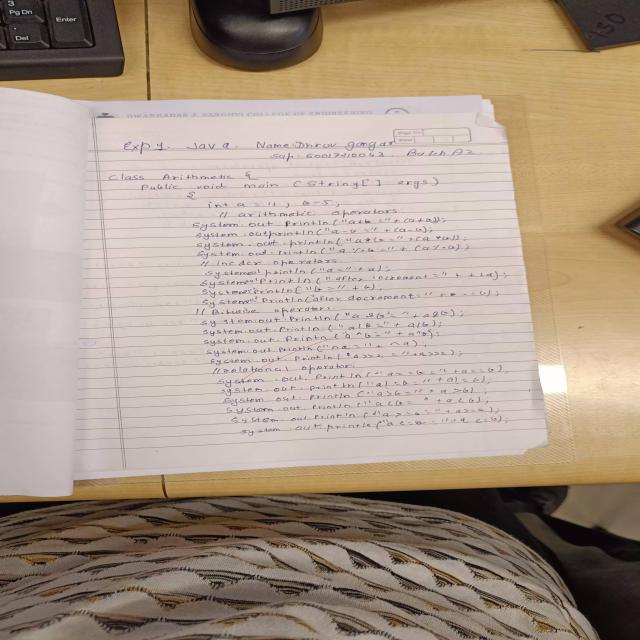 3
Pg Dn
Enter
Del
150
DWARKADAS J. SANGHVI COLLEGE OF ENGINEERING
Exp 1. Java. Name: Dhruv gangar
Sap: Batch A2
Class Arithmetic {
Public void main (String[] args)
{
int a = 11, b = 5;
// arithmetic operators
System.out.println("a+b="+(a+b));
System.out.println("a-b="+(a-b));
System.out.println("a*b="+(a*b));
System.out.println("a%b="+(a%b));
// incder operators
System" println("a="+a);
System" println("after increment="+ ++a);
System" println("b="+b);
System" println("after decrement="+ --b);
// Bitwise operator
System.out.println("a&b="+a&b);
System.out.println("a|b="+a|b);
System.out.println("a^b="+a^b);
System.out.println(
System.out.println(
// relational operator
System.out.println("a==b="+a==b);
System.out.println(
System.out.println("a>b="+a>b);
System.out.println("a<b="+a<b);
System.out.println("a>=b="+a>=b);
System.out.println("a<=b="+a<=b);